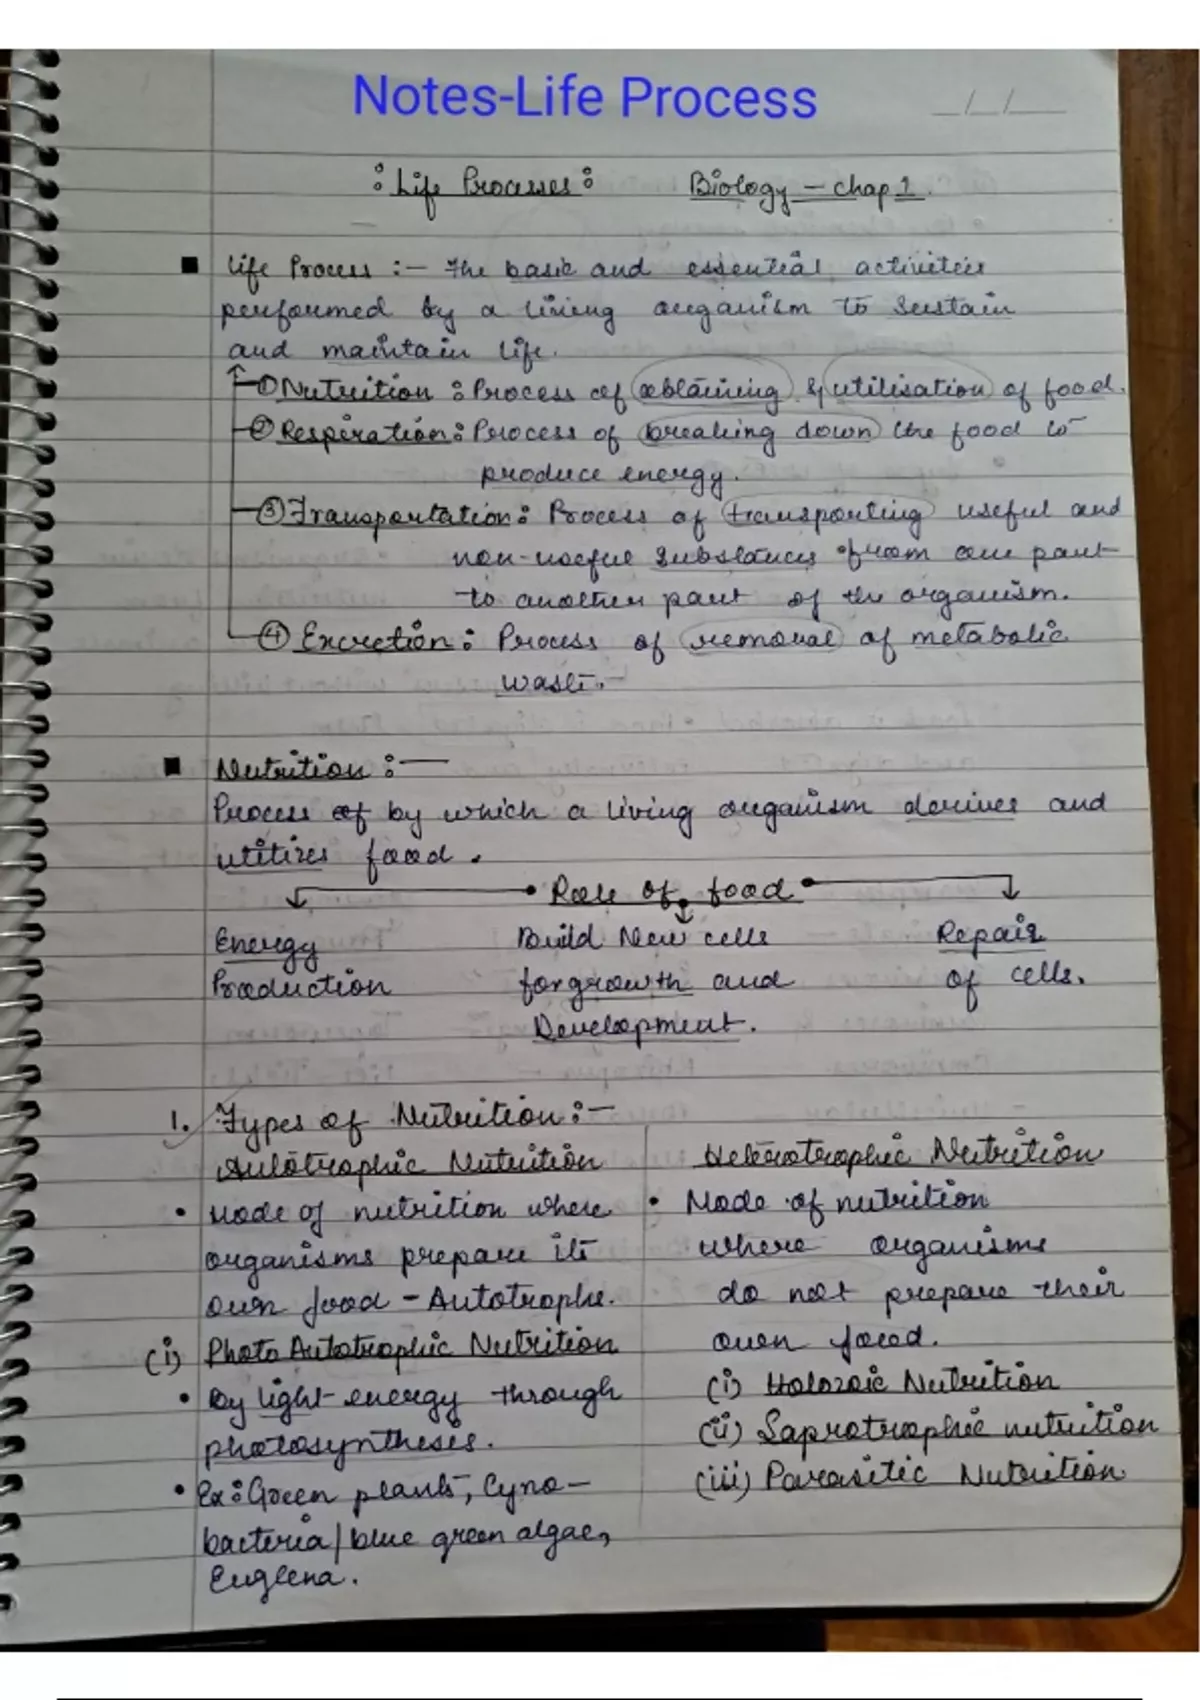 Notes-Life Process
_/_/__
: Life Processes : Biology - chap 1.
■ Life Process :- The basic and essential activities
performed by a living organism to sustain
and maintain life.
① Nutrition : Process of obtaining & utilisation of food.
② Respiration : Process of breaking down the food to
produce energy.
③ Transportation : Process of transporting useful and
non-useful substances from one part
to another part of the organism.
④ Excretion : Process of removal of metabolic
waste.
■ Nutrition :-
Process of by which a living organism derives and
utilizes food.
Role of food
Energy Production
Build New cells for growth and Development.
Repair of cells.
1. Types of Nutrition :-
Autotrophic Nutrition
• Mode of nutrition where
organisms prepare its
own food - Autotrophe.
(i) Photo Autotrophic Nutrition
• By light energy through
photosyntheses.
• Ex: Green plants, Cyno-
bacteria / blue green algae,
Euglena.
Heterotrophic Nutrition
• Mode of nutrition
where organisms
do not prepare their
own food.
(i) Holozoic Nutrition
(ii) Saprotrophic nutrition
(iii) Parasitic Nutrition